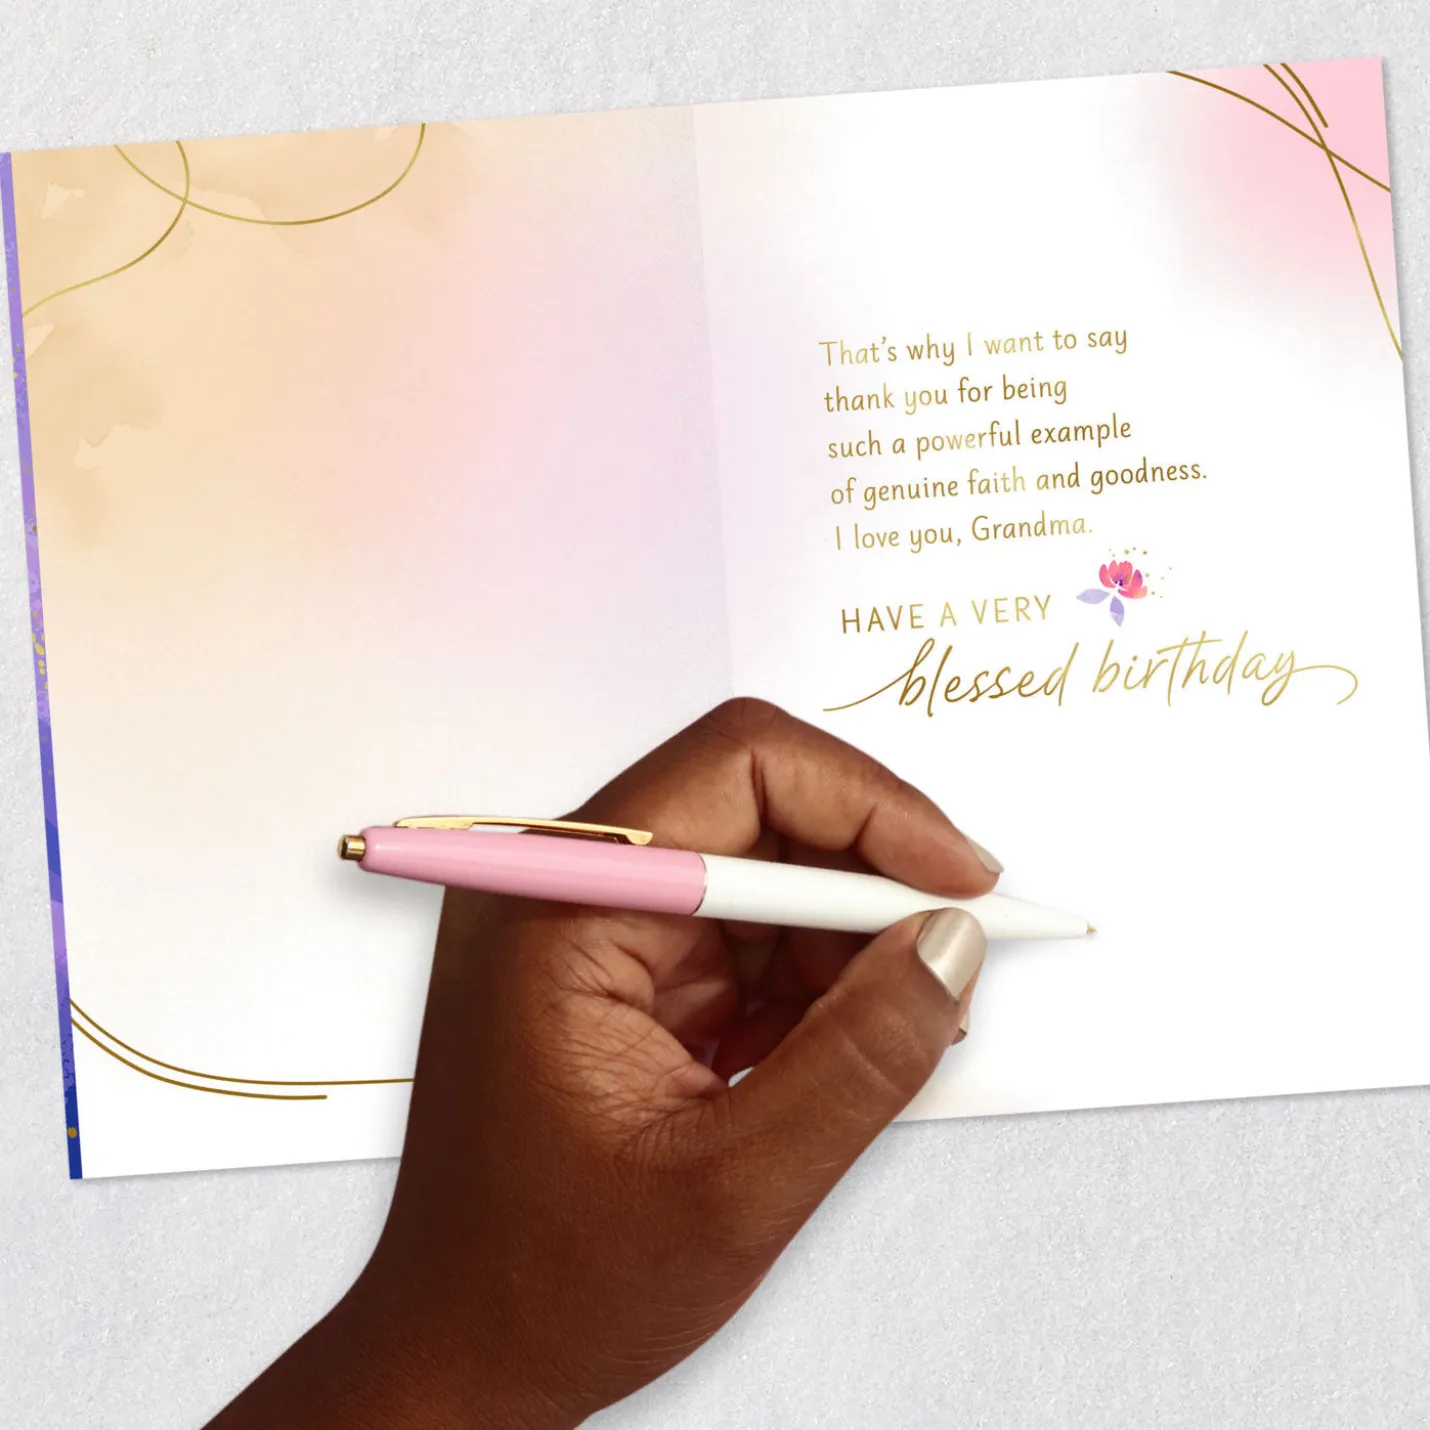 That's why I want to say
thank you for being
such a powerful example
of genuine faith and goodness.
I love you, Grandma.
HAVE A VERY
blessed birthday